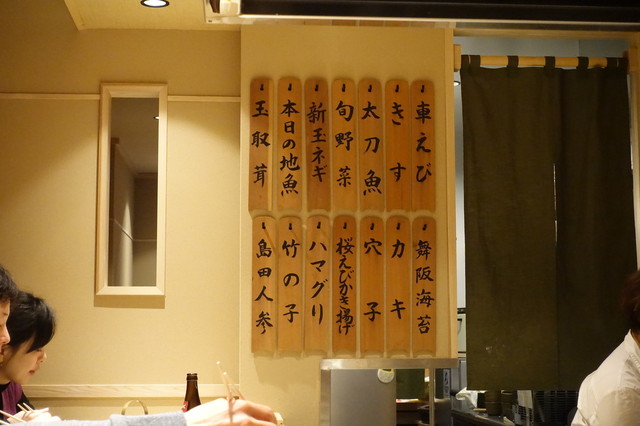 車えび
きす
太刀魚
旬野菜
新玉ネギ
本日の地魚
玉取茸
舞阪海苔
カキ
穴子
桜えびかき揚げ
ハマグリ
竹の子
島田人参